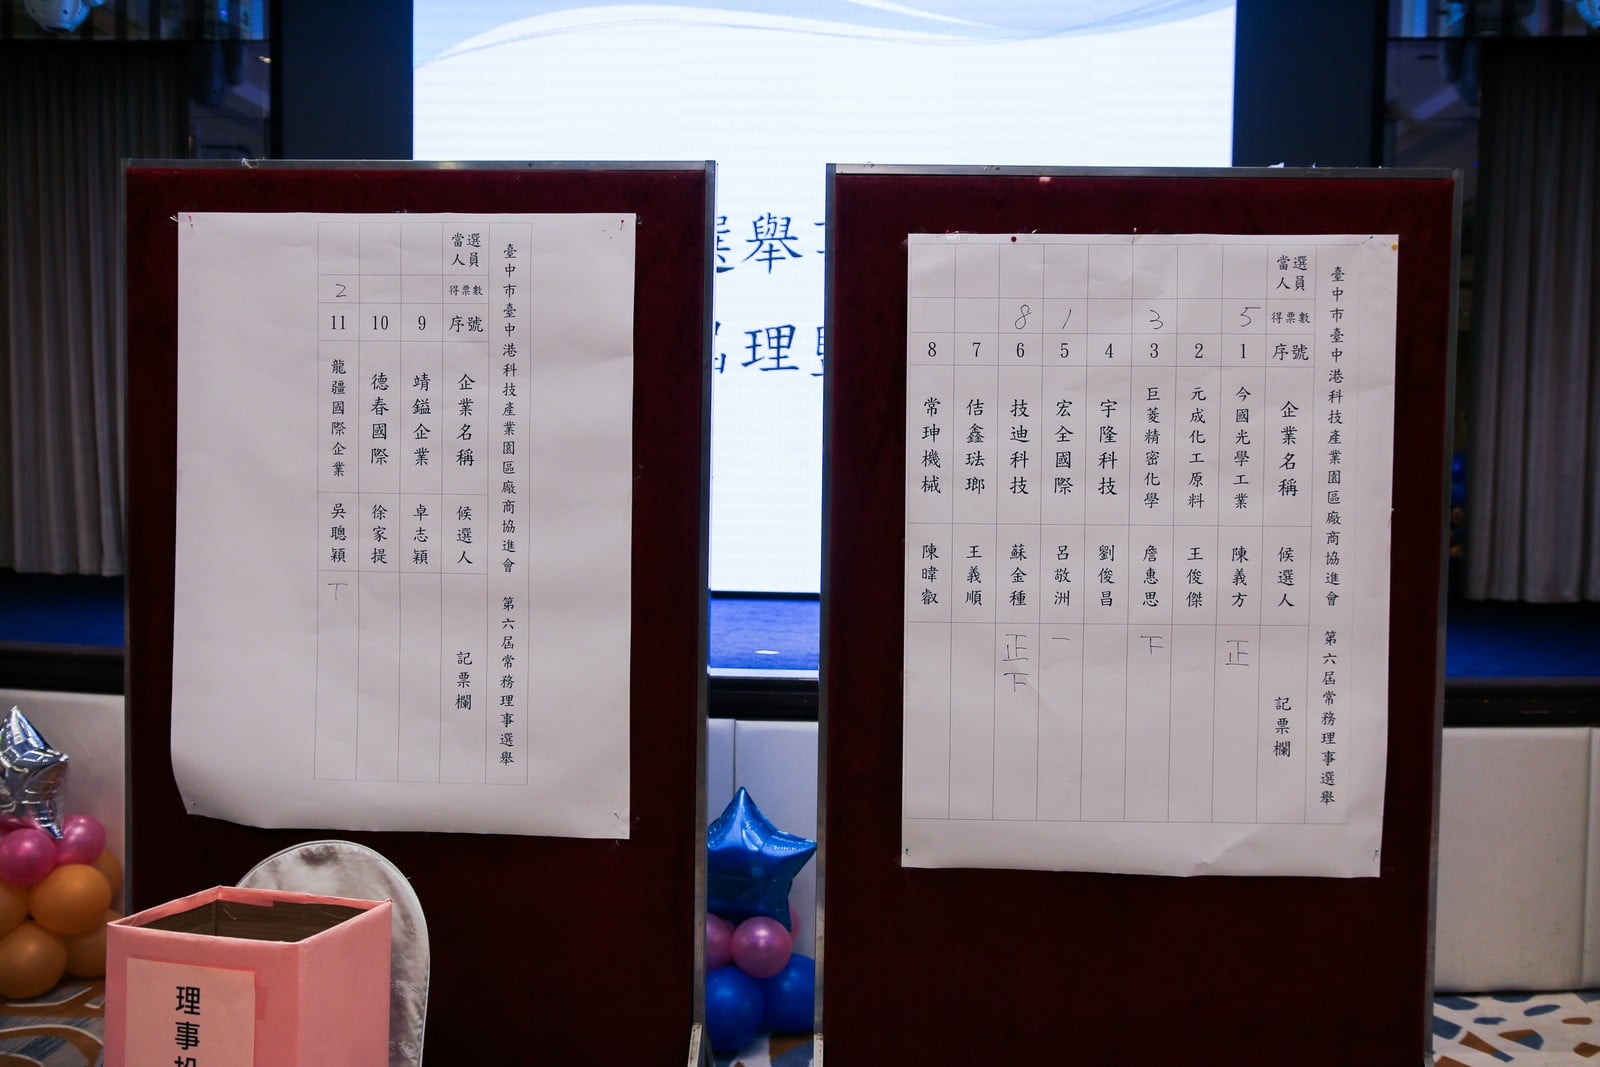 臺中市臺中港科技產業園區廠商協進會 第六屆常務理事選舉
當選人員 得票數 序號 企業名稱 候選人 記票欄
5 1 今國光學工業 陳義方 正
2 元成化工原料 王俊傑
3 3 巨菱精密化學 詹惠思 下
4 宇隆科技 劉俊昌
1 5 宏全國際 呂敬洲 一
8 6 技迪科技 蘇金種 正下
7 佶鑫琺瑯 王義順
8 常珅機械 陳暐叡
臺中市臺中港科技產業園區廠商協進會 第六屆常務理事選舉
當選人員 得票數 序號 企業名稱 候選人 記票欄
9 靖鎰企業 卓志穎
10 德春國際 徐家提
2 11 龍疆國際企業 吳聰穎 丅
選舉
屆理
理事投